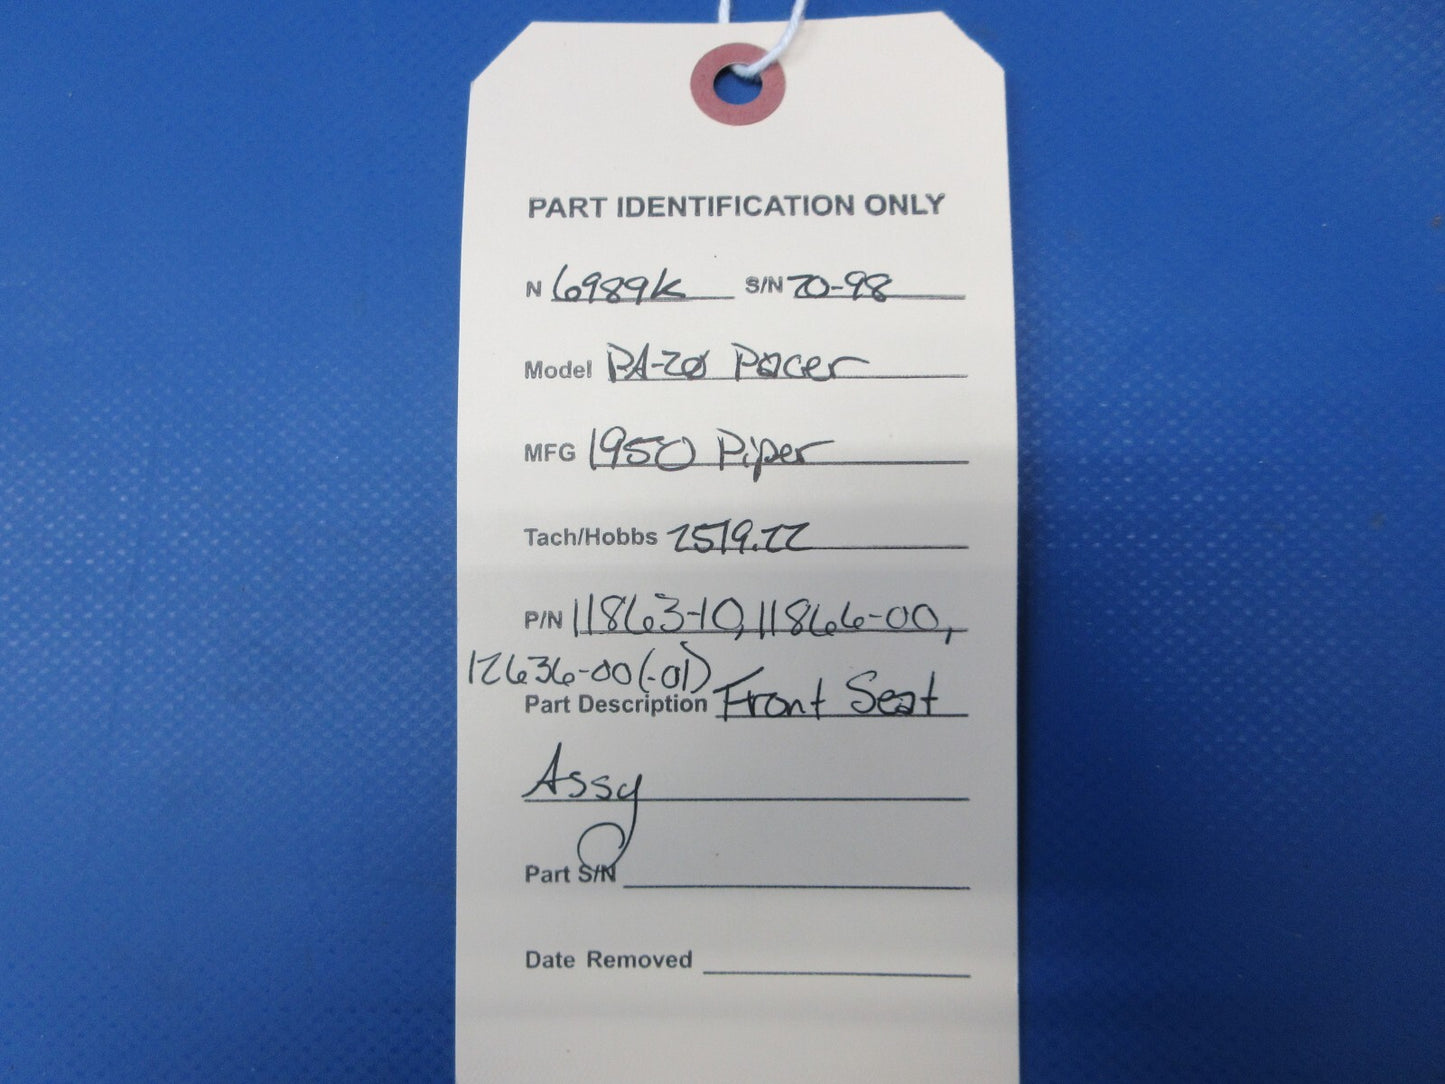 PART IDENTIFICATION ONLY
N 6989K S/N 20-98
Model PA-20 Pacer
MFG 1950 Piper
Tach/Hobbs 2519.22
P/N 11863-10, 11866-00,
12636-00(-01)
Part Description Front Seat
Assy
Part S/N
Date Removed